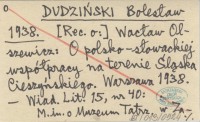 DUDZIŃSKI Bolesław
1938. [Rec. o:] Wacław Ol-
szewicz: O polsko-słowackiej
współpracy na terenie Śląska
Cieszyńskiego. Warszawa 1938.
- Wiad. Lit. 15, nr 40:
M.in. o Muzeum Tatrz. w Za-